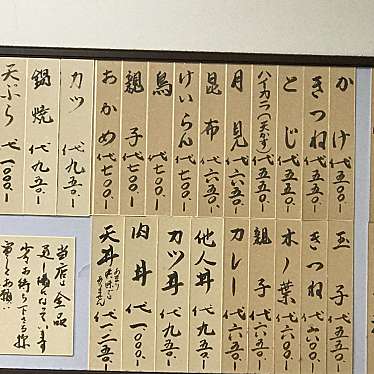 かけ 代五五〇ー
きつね 代五五〇ー
とじ 代五五〇ー
ハイカラ(天かす) 代五五〇ー
月見 代六五〇ー
昆布 代六五〇ー
けいらん 代七〇〇ー
鳥 代七〇〇ー
親子 代七〇〇ー
おかめ 代七〇〇ー
カツ 代九五〇ー
鍋焼 代九五〇ー
天ぷら 代一、〇〇〇ー
玉子 代五五〇ー
きつね 代六〇〇ー
木ノ葉 代六〇〇ー
親子 代六五〇ー
カレー 代六五〇ー
他人丼 代九五〇ー
カツ丼 代九五〇ー
肉丼 代一、〇〇〇ー
天丼 代一、二五〇ー
当店は全品
少々お待ち下さる様